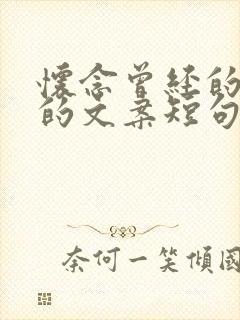 懷念曾經的
的文案短句
奈何一笑傾國